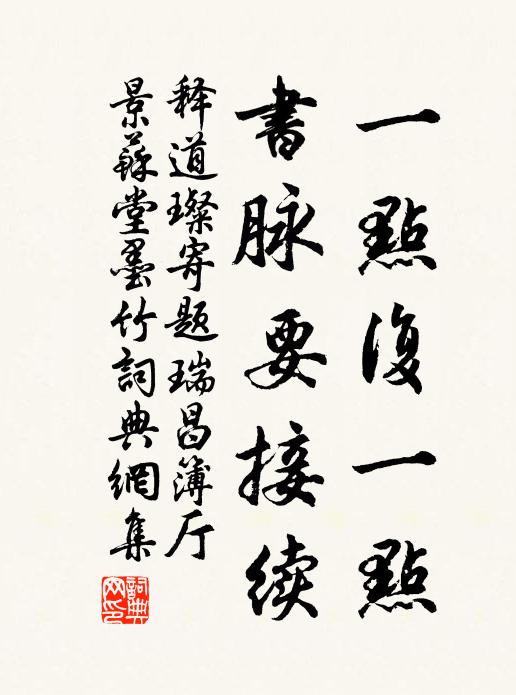 一點復一點
書脉要接续
释道璨寄题瑞昌簿厅
景蘇堂墨竹詞典網集
詞典
网印